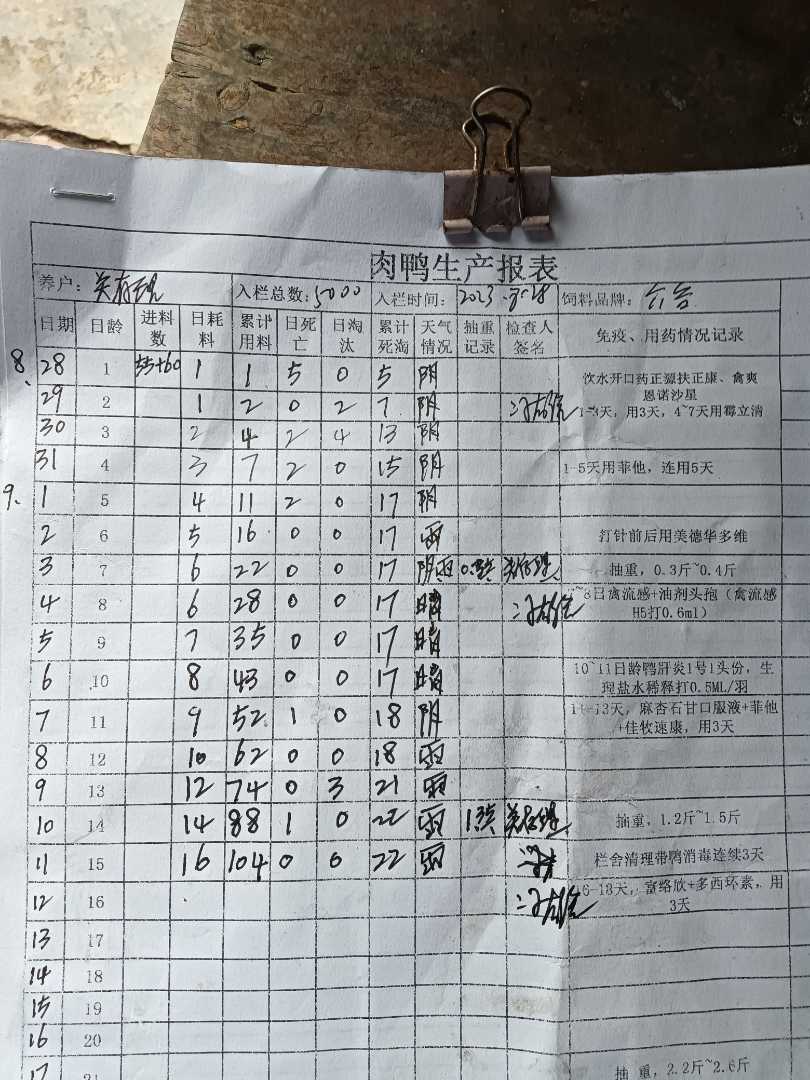 肉鸭生产报表
养户： 入栏总数：5000 入栏时间：2023.8.28 饲料品牌：六合
日期 日龄 进料数 日耗料 累计用料 日死亡 日淘汰 累计死淘 天气情况 抽重记录 检查人签名 免疫、用药情况记录
8、28 1 55+60 1 1 5 0 5 阴 饮水开口药正源扶正康、禽爽 恩诺沙星
29 2 1 2 0 2 7 阴 1-3天，用3天，4~7天用霉立清
30 3 2 4 2 4 13 阴
31 4 3 7 2 0 15 阴 1-5天用菲他，连用5天
9、1 5 4 11 2 0 17 阴
2 6 5 16 0 0 17 雨 打针前后用美德华多维
3 7 6 22 0 0 17 阴雨 抽重，0.3斤~0.4斤
4 8 6 28 0 0 17 晴 8日禽流感+油剂头孢（禽流感H5打0.6ml）
5 9 7 35 0 0 17 晴
6 10 8 43 0 0 17 晴 10~11日龄鸭肝炎1号1头份，生理盐水稀释打0.5ML/羽
7 11 9 52 1 0 18 阴 11-13天，麻杏石甘口服液+菲他+佳牧速康，用3天
8 12 10 62 0 0 18 雨
9 13 12 74 0 3 21 雨
10 14 14 88 1 0 22 雨 抽重，1.2斤~1.5斤
11 15 16 104 0 0 22 雨 栏舍清理带鸭消毒连续3天
12 16 6-18天，富络欣+多西环素，用3天
13 17
14 18
15 19
16 20
17 21 抽 重，2.2斤~2.6斤